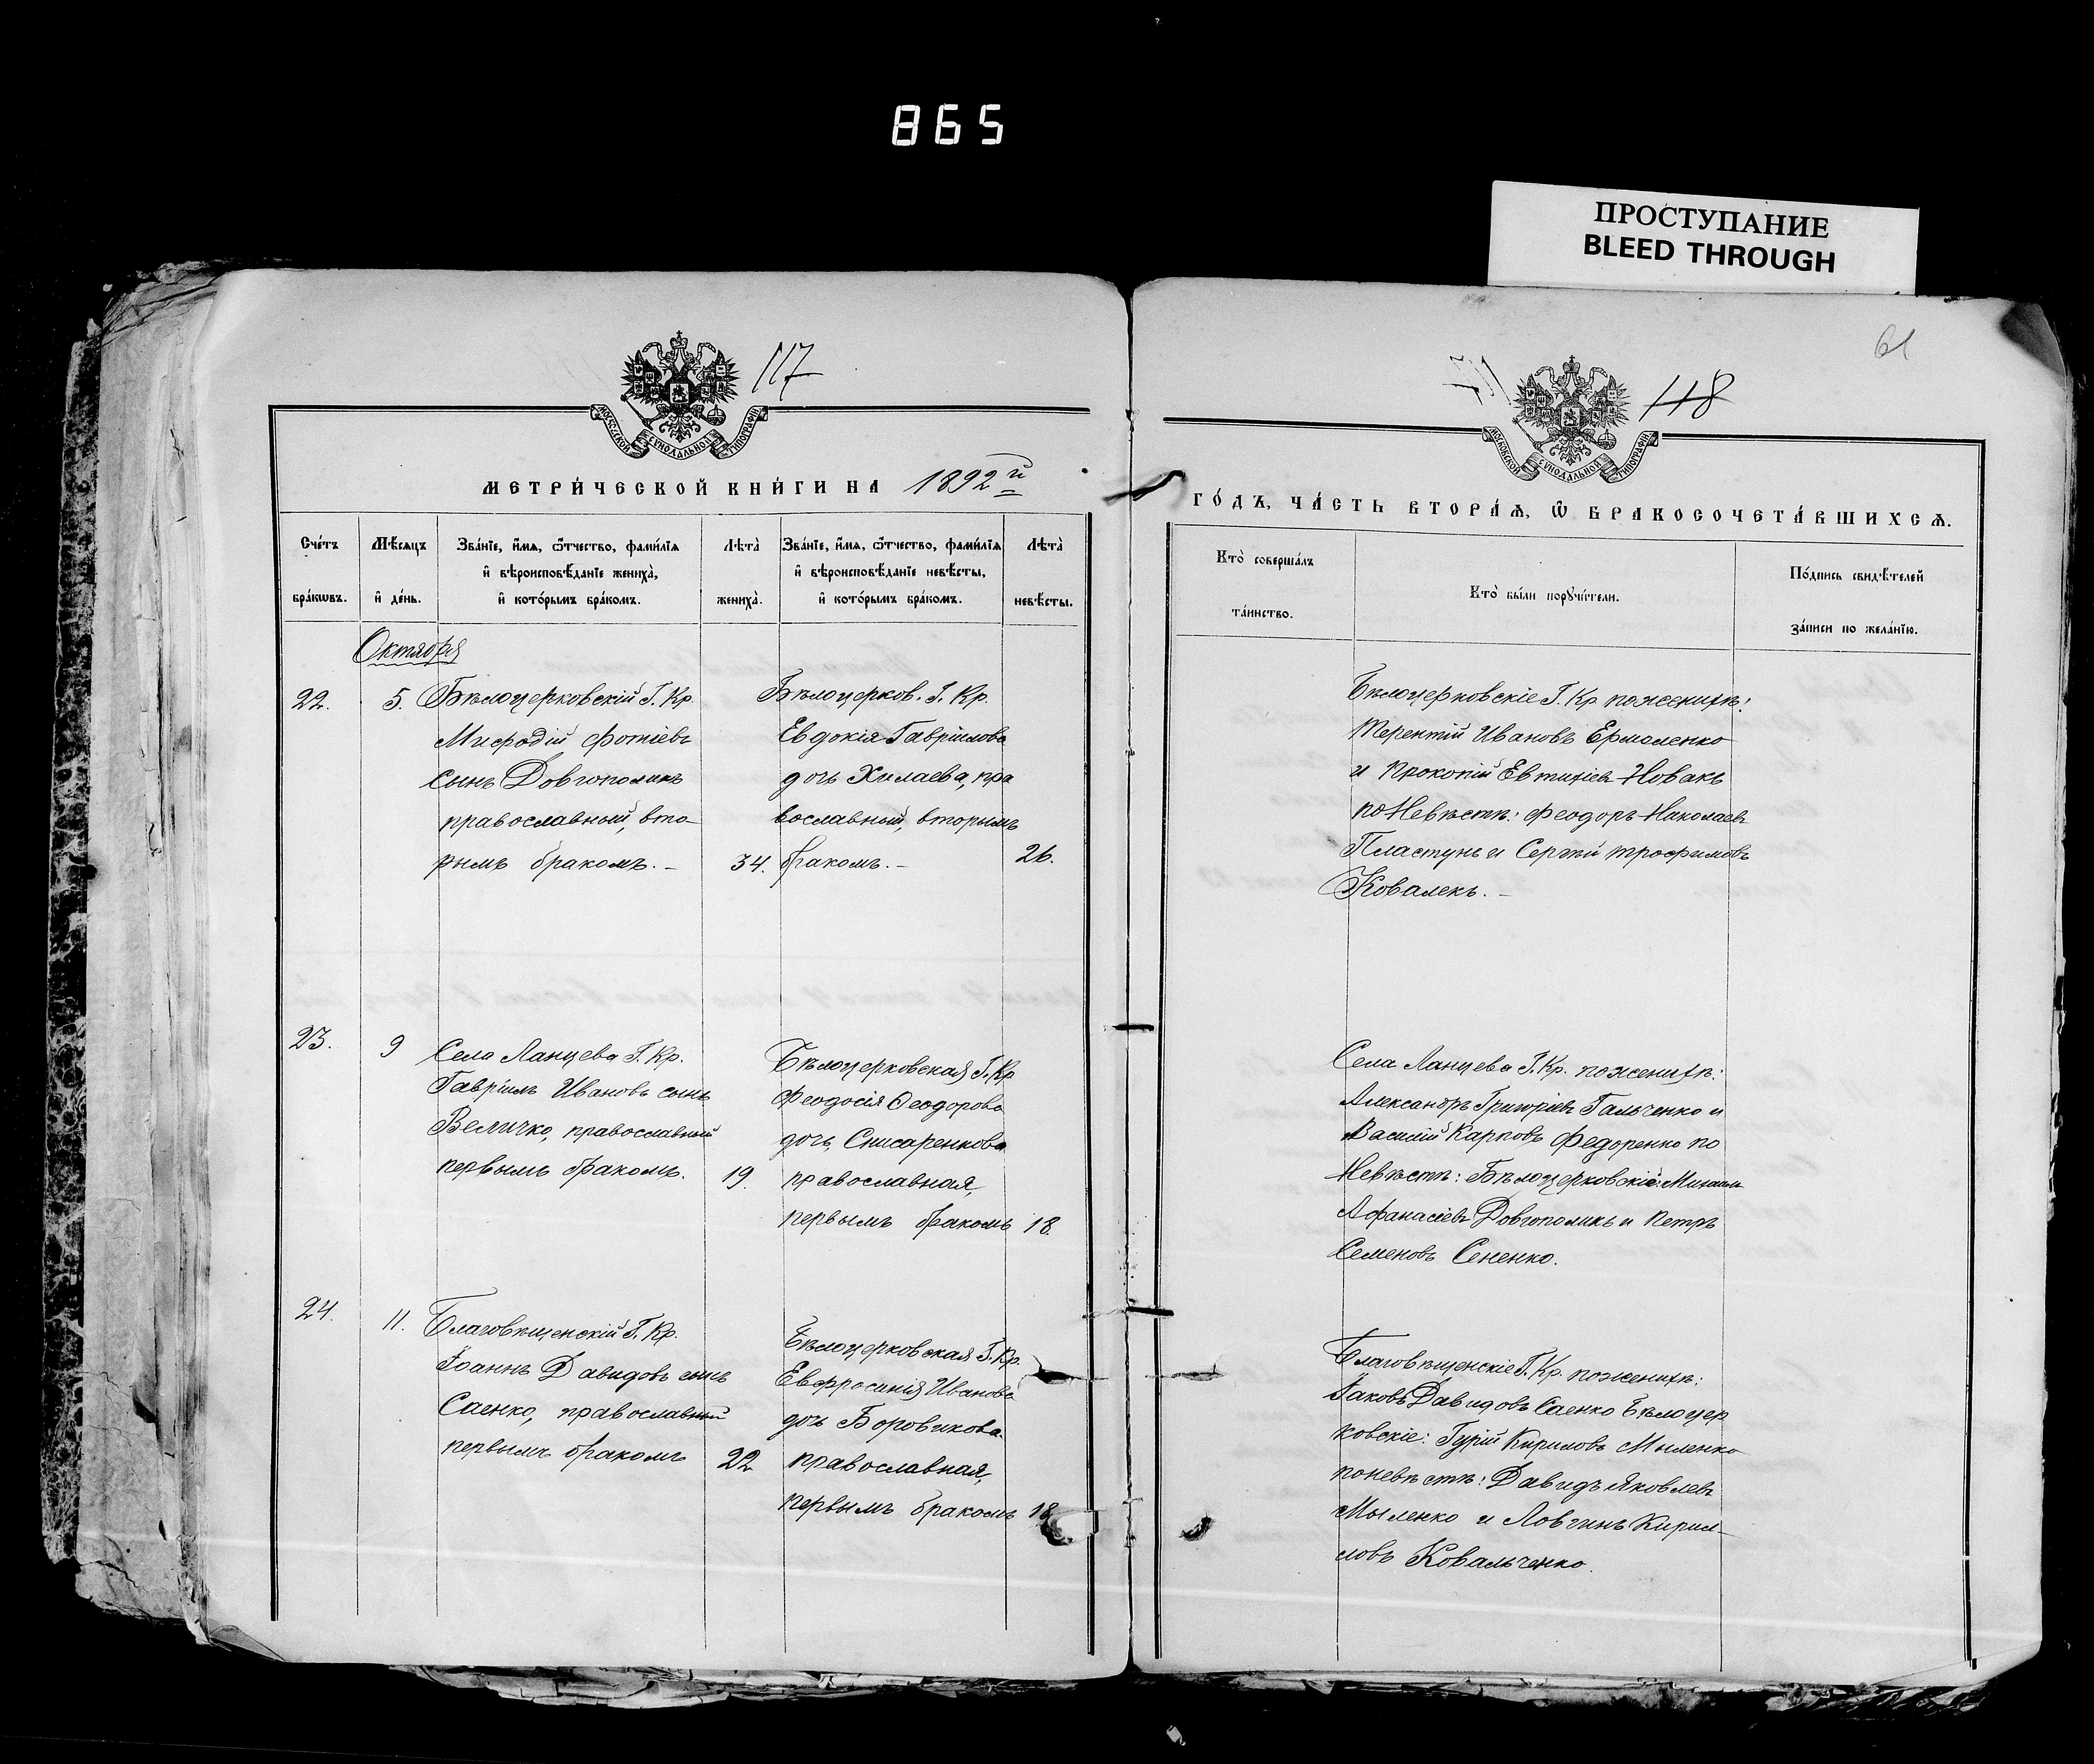 865
ПРОСТУПАНИЕ
BLEED THROUGH
61
117
118
МОСКОВСКОЙ СѴНОДАЛЬНОЙ ТИПОГРАФІИ
МОСКОВСКОЙ СѴНОДАЛЬНОЙ ТИПОГРАФІИ
МЕТРИ́ЧЕСКОЙ КНИ́ГИ НА 1892й
ГО́ДЪ, ЧА́СТЬ ВТОРА́Ѧ, Ѽ БРАКОСОЧЕТА́ВШИХСѦ.
Сче́тъ
бра́кѡвъ.
Мѣ́сѧцъ
и҆ де́нь.
Зва́нїе, и҆́мѧ, ѻ҆́тчество, фами́лїѧ
и҆ вѣроисповѣ́данїе жениха̀,
и҆ кото́рымъ бра́комъ.
Лѣта̀
жениха̀.
Зва́нїе, и҆́мѧ, ѻ҆́тчество, фами́лїѧ
и҆ вѣроисповѣ́данїе невѣ́сты,
и҆ кото́рымъ бра́комъ.
Лѣта̀
невѣ́сты.
Кто̀ соверша́лъ
та́инство.
Кто̀ бы́ли порꙋчи́тели.
По́дпись свидѣ́телей
за́писи по жела́нїю.
Октября
22.
5.
Бѣлоцерковскій Г. Кр.
Мифодій Фотіевъ
сынъ Довгополикъ
православный, вто-
рымъ бракомъ. –
34.
Бѣлоцерков. Г. Кр.
Евдокія Гавріилова
дочь Хилаева, пра
вославный, вторымъ
бракомъ. –
26.
Бѣлоцерковскіе Г. Кр. по женихѣ:
Терентій Ивановъ Ермоленко
и Прокопій Евтихіевъ Новакъ
по Невѣстѣ: Феодоръ Николаевъ
Пластунъ и Сергѣй Трофимовъ
Ковалекъ. –
23.
9
Села Ланцева Г. Кр.
Гавріилъ Ивановъ сынъ
Величко, православный
первымъ бракомъ.
19.
Бѣлоцерковская Г. Кр
Феодосія Ѳеодорова
дочь, Снисаренкова
православная,
первымъ бракомъ
18.
Села Ланцева Г. Кр. по женихѣ:
Александръ Григоріевъ Гальченко и
Василій Карповъ Федоренко по
Невѣстѣ: Бѣлоцерковскіе: Михаилъ
Афанасіевъ Довгополикъ и Петръ
Семеновъ Сененко.
24.
11.
Благовѣщенскій Г. Кр.
Іоаннъ Давидовъ сынъ
Саенко, православный
первымъ бракомъ
22
Бѣлоцерковская Г. Кр.
Евфросинія Иванова
дочь Боровикова.
православная,
первымъ бракомъ
18
Благовѣщенскіе Г. Кр. по женихѣ:
Іаковъ Давидовъ Саенко Бѣлоцер
ковскіе: Гурій Кириловъ Мыленко
по невѣстѣ: Давидъ Яковлевъ
Мыленко и Ловгинъ Кирил-
ловъ Ковальченко.